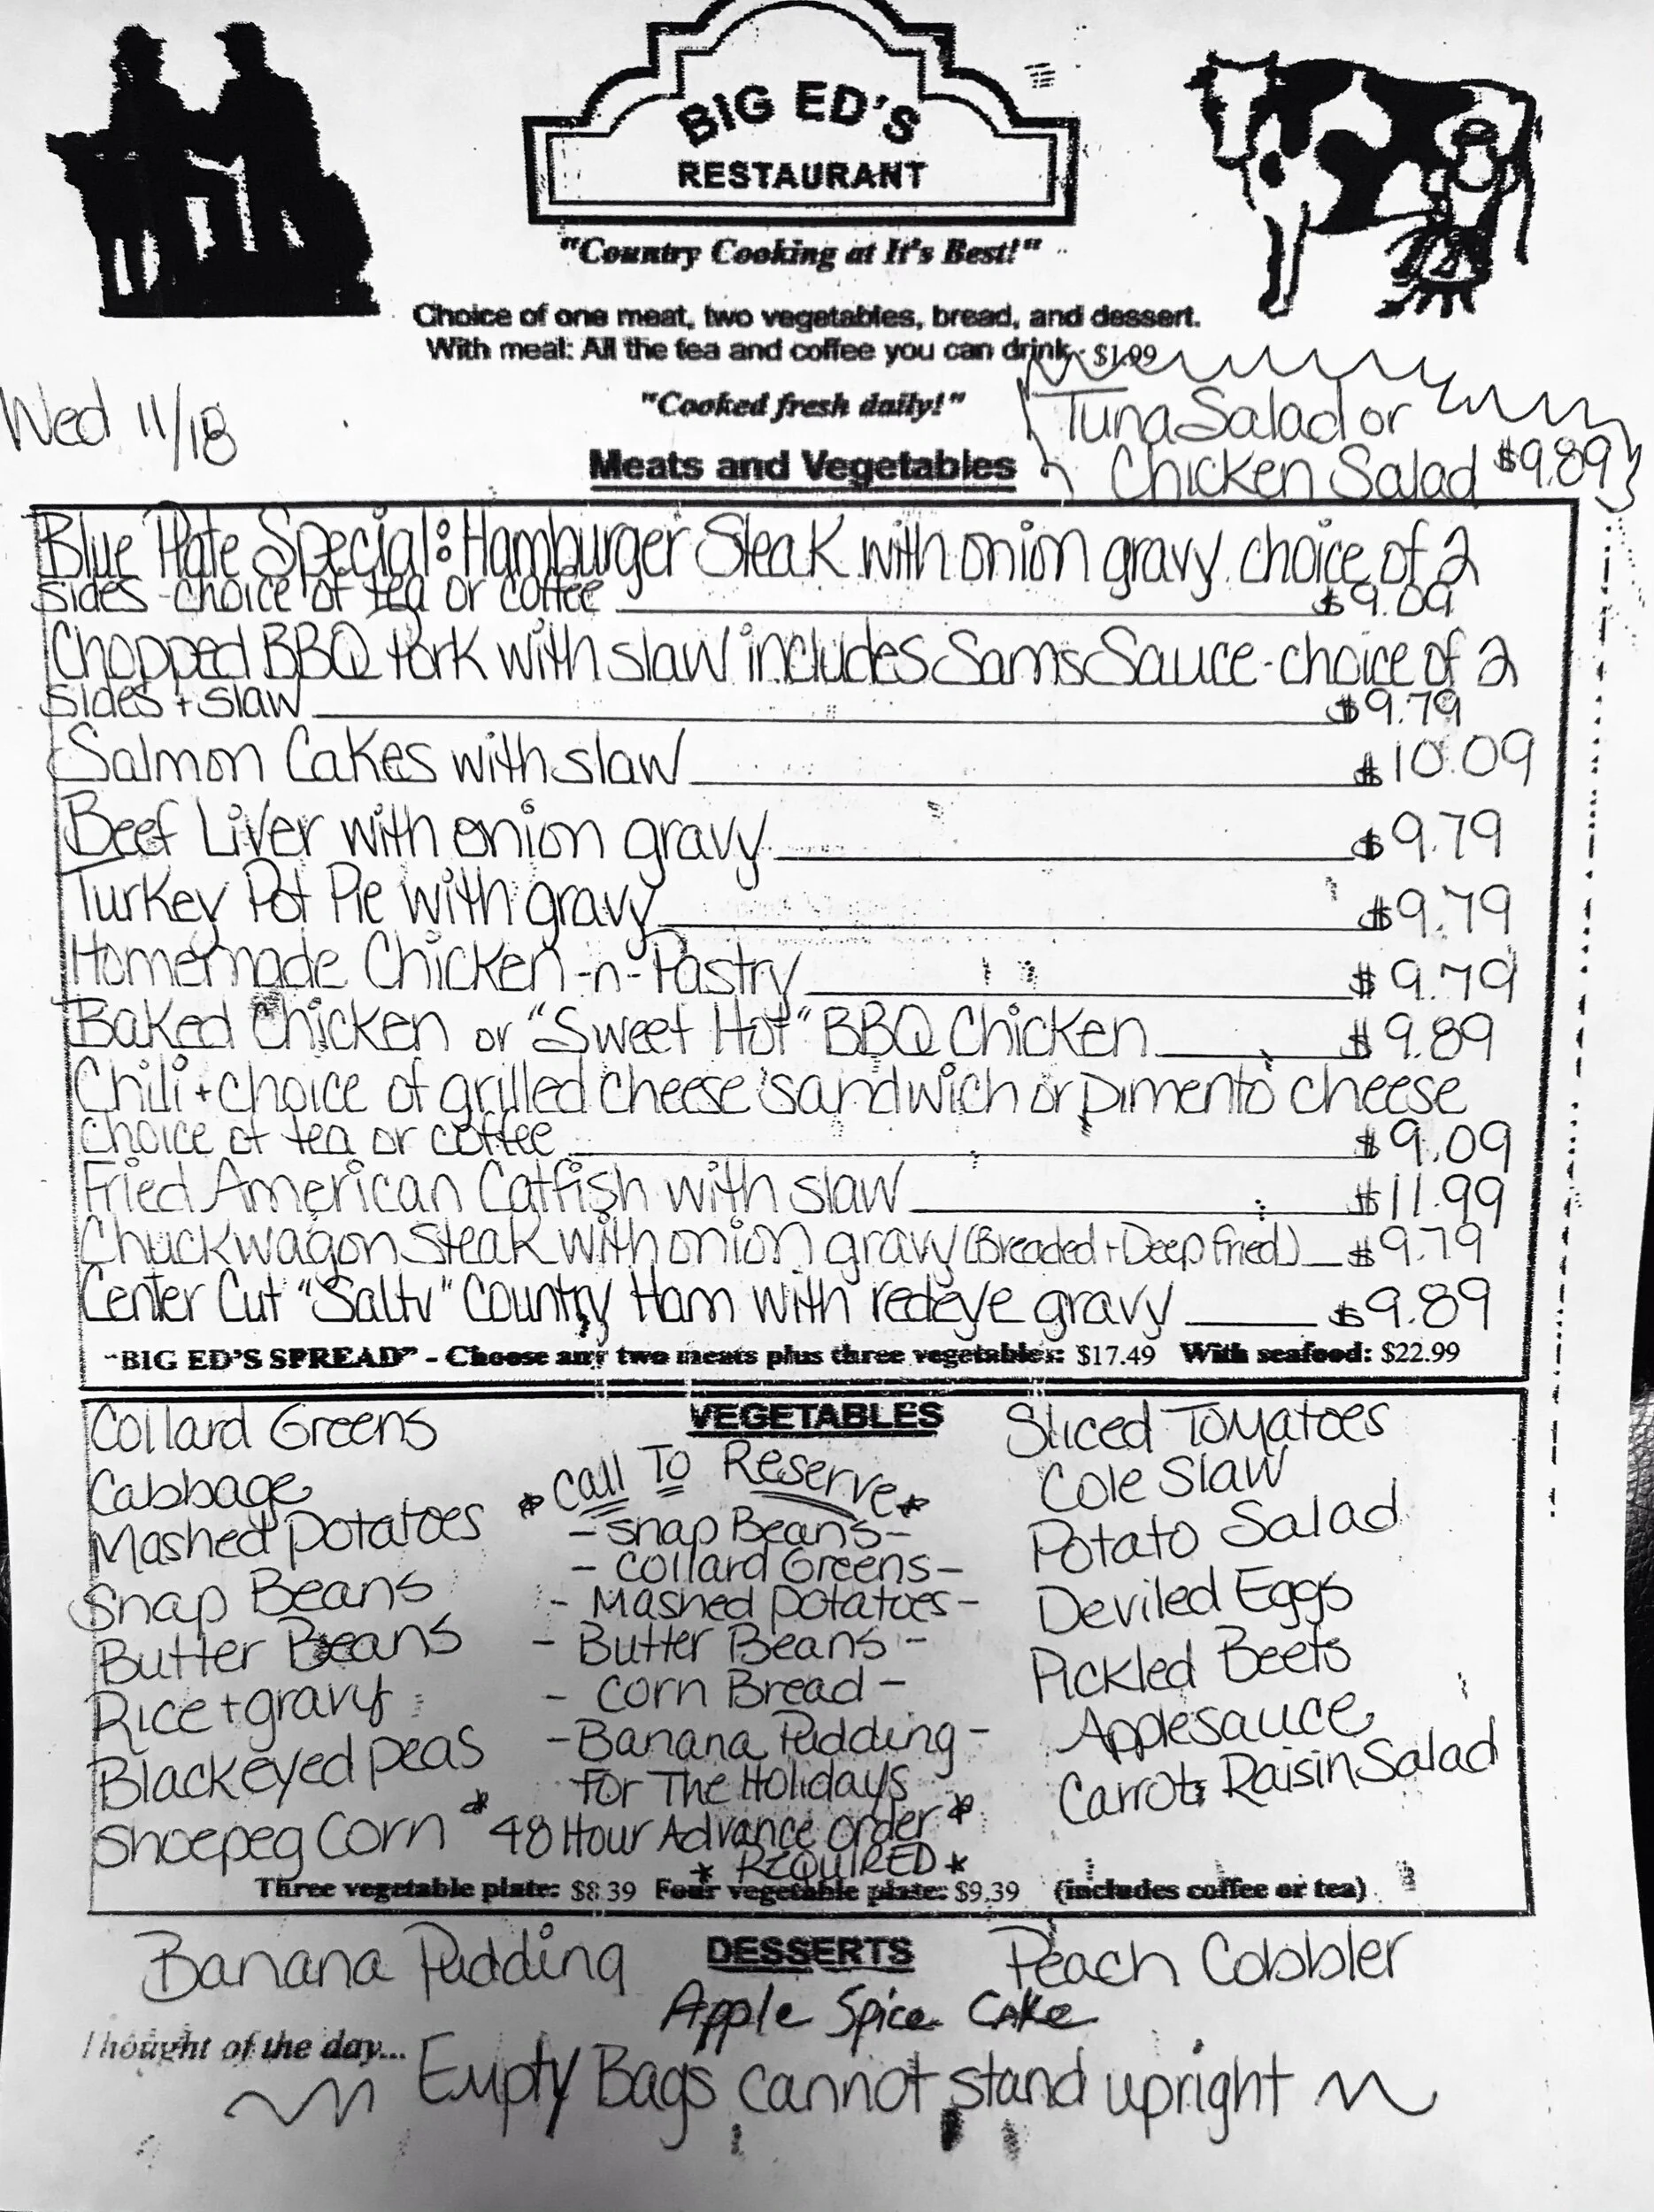 BIG ED'S
RESTAURANT
"Country Cooking at It's Best!"
Choice of one meat, two vegetables, bread, and dessert.
With meal: All the tea and coffee you can drink - $1.99
"Cooked fresh daily!"
Wed 11/18
Tuna Salad or
Chicken Salad $9.89
Meats and Vegetables
Blue Plate Special: Hamburger Steak with onion gravy choice of 2
sides - choice of tea or coffee $9.09
Chopped BBQ Pork with slaw includes Sams Sauce - choice of 2
sides + slaw $9.79
Salmon Cakes with slaw $10.09
Beef Liver with onion gravy $9.79
Turkey Pot Pie with gravy $9.79
Homemade Chicken -n- Pastry $9.79
Baked Chicken or "Sweet Hot" BBQ Chicken $9.89
Chili + choice of grilled cheese sandwich or pimento cheese
choice of tea or coffee $9.09
Fried American Catfish with slaw $11.99
Chuckwagon Steak with onion gravy (Breaded + Deep fried) $9.79
Center Cut "Salty" Country Ham with redeye gravy $9.89
"BIG ED'S SPREAD" - Choose any two meats plus three vegetables: $17.49 With seafood: $22.99
VEGETABLES
Collard Greens
Cabbage
Mashed Potatoes
Snap Beans
Butter Beans
Rice + gravy
Blackeyed peas
Shoepeg Corn
*Call To Reserve*
- Snap Beans -
- Collard Greens -
- Mashed Potatoes -
- Butter Beans -
- Corn Bread -
- Banana Pudding -
For The Holidays
* 48 Hour Advance order *
* REQUIRED *
Sliced Tomatoes
Cole Slaw
Potato Salad
Deviled Eggs
Pickled Beets
Applesauce
Carrot Raisin Salad
Three vegetable plate: $8.39 Four vegetable plate: $9.39 (includes coffee or tea)
DESSERTS
Banana Pudding
Peach Cobbler
Apple Spice Cake
Thought of the day...
Empty Bags cannot stand upright